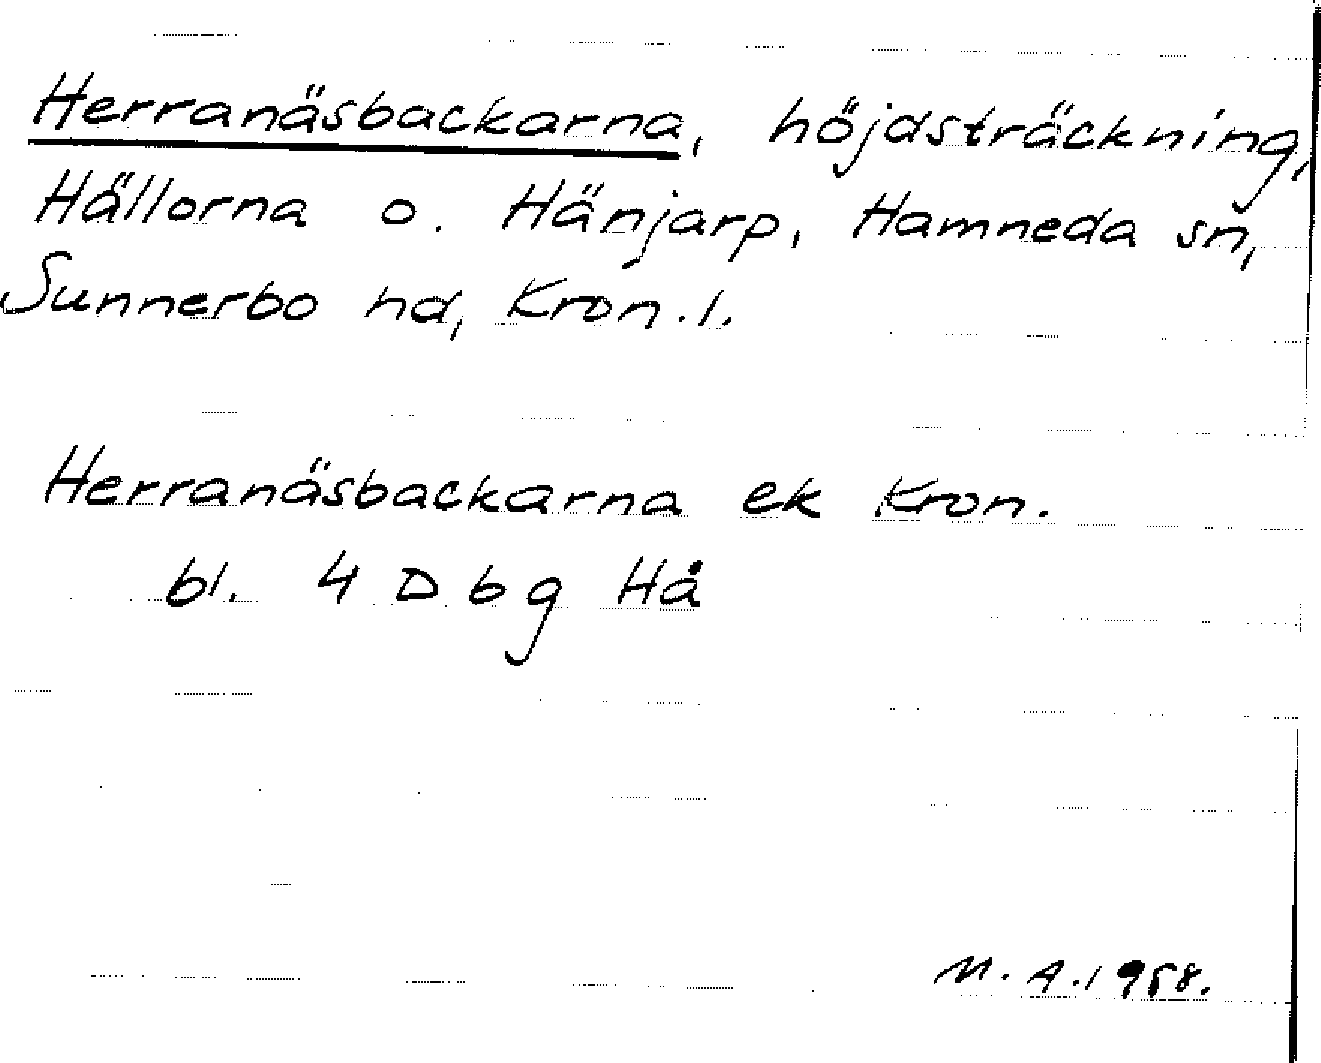 Herranäsbackarna, höjdsträckning,
Hällorna o. Hänjarp, Hamneda sn,
Sunnerbo hd, Kron. l.
Herranäsbackarna ek Kron.
bl. 4 D b g Hå
M. A. 1958.